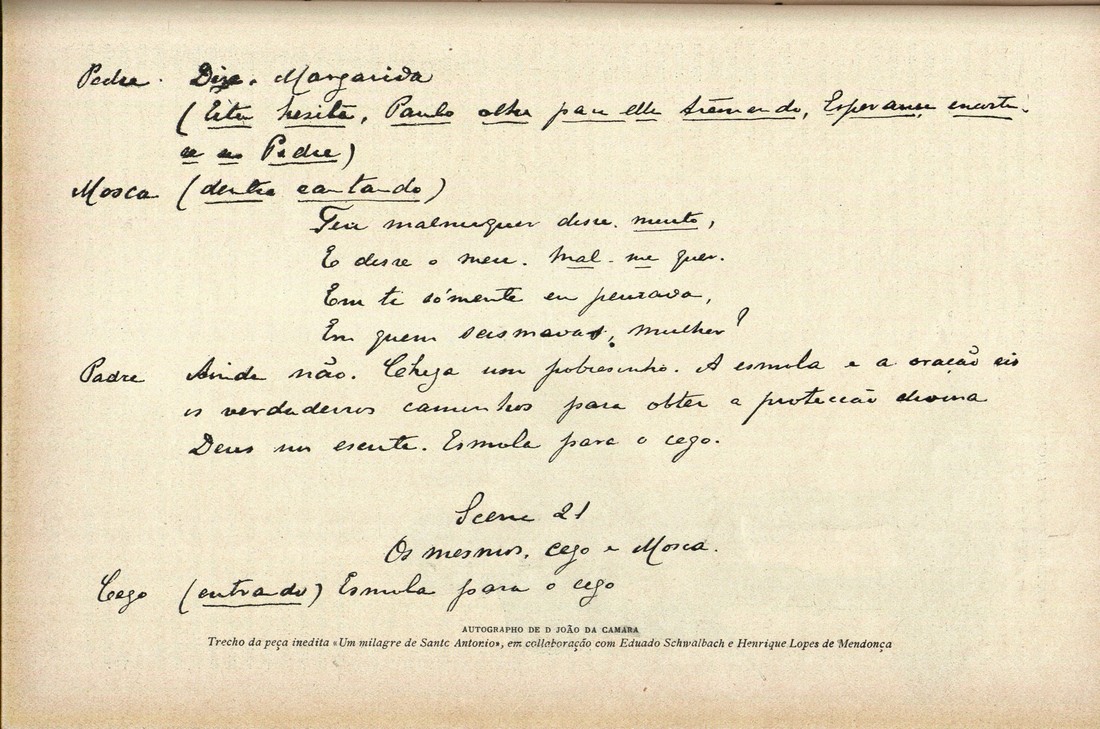 Padre. Dize, Margarida
(Esta hesita, Paulo olha para elle tremendo, Esperança encosta-
se ao Padre)
Mosca (dentro cantando)
Teu malmequer disse. muito,
E disse o meu. Mal-me quer.
Em ti sómente eu pensava,
Em quem scismavas, mulher?
Padre Ainda não. Chega um pobresinho. A esmola e a oração eis
os verdadeiros caminhos para obter a protecção divina
Deus nos escute. Esmola para o cego.
Scena 21
Os mesmos, cego e Mosca.
Cego (entrando) Esmola para o cego
AUTOGRAPHO DE D JOÃO DA CAMARA
Trecho da peça inedita «Um milagre de Santo Antonio», em collaboração com Eduado Schwalbach e Henrique Lopes de Mendonça